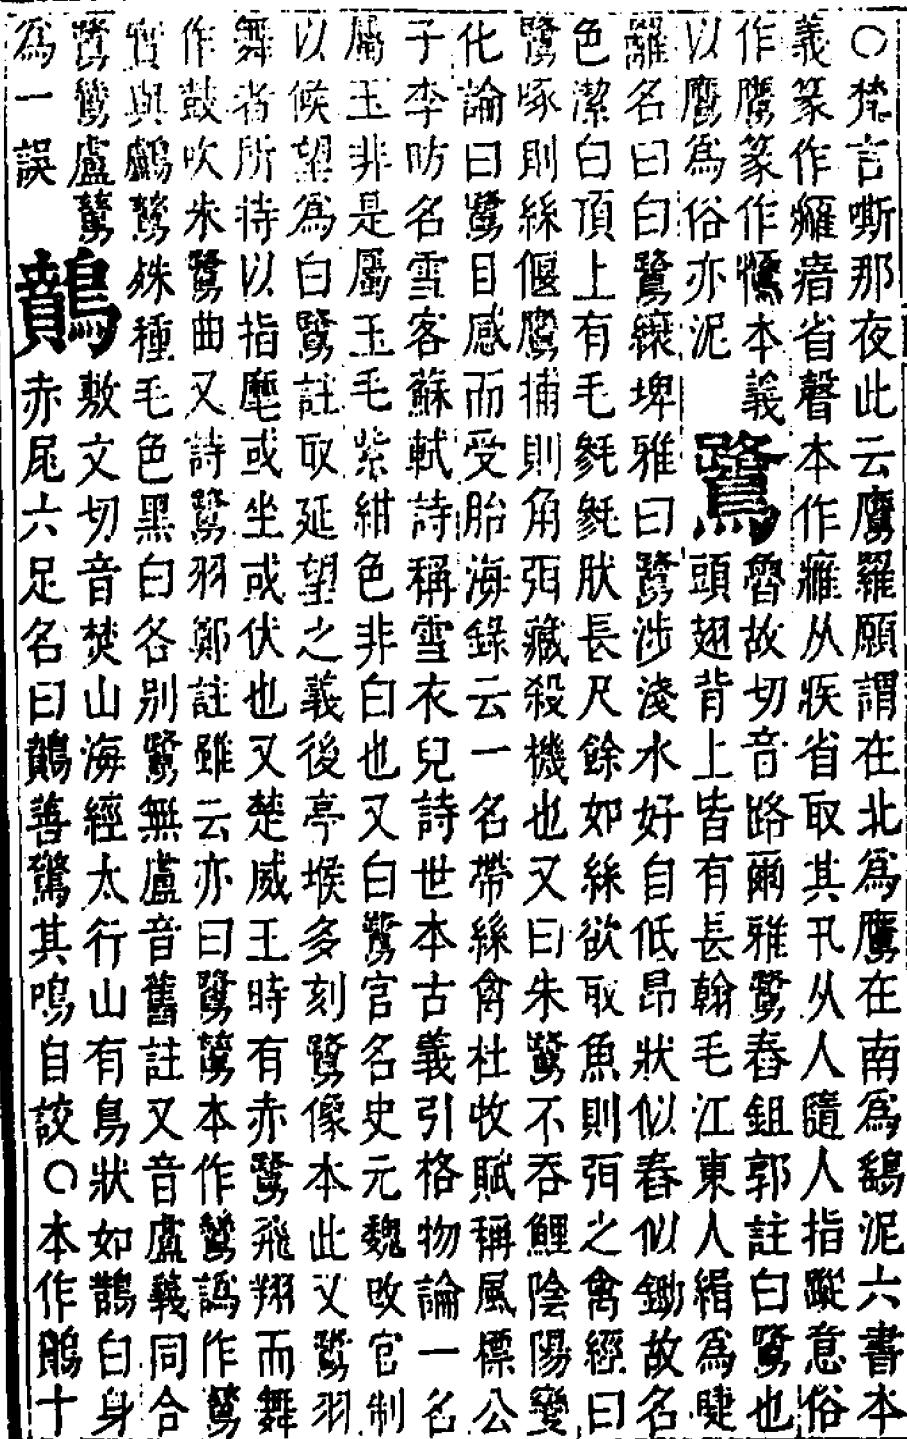 ○梵言嘶那夜此云鷹羅願謂在北爲鷹在南爲鷂泥六書本
義篆作癰𤸰省聲本作㾭从疾省取其卂从人隨人指蹤意俗
作鷹篆作𢥠本義
以鷹爲俗亦泥 鷺 魯故切音路爾雅鷺舂鉏郭註白鷺也
頭翅背上皆有長翰毛江東人緝爲睫
䍦名曰白鷺縗埤雅曰鷺涉淺水好自低昂狀似舂似鋤故名
色潔白頂上有毛毿毿狀長尺餘如絲欲取魚則弭之禽經曰
鷺啄則絲偃鷹捕則角弭藏殺機也又曰朱鷺不吞鯉陰陽變
化論曰鷺目感而受胎海錄云一名帶絲禽杜牧賦稱風標公
子李昉名雪客蘇軾詩稱雪衣兒詩世本古義引格物論一名
屬玉非是屬玉毛紫紺色非白也又白鷺官名史元魏改官制
以候望爲白鷺註取延望之義後亭堠多刻鷺像本此又鷺羽
舞者所持以指麾或坐或伏也又楚威王時有赤鷺飛翔而舞
作鼓吹朱鷺曲又詩鷺羽鄭註雖云亦曰鷺鷥本作鷥譌作鷥
實與鸕鷥殊種毛色黑白各別鷺無盧音舊註又音盧義同合
鷺鷥盧鷥
爲一誤 鷏 敷文切音焚山海經太行山有鳥狀如鵲白身
赤尾六足名曰鷏善驚其鳴自詨○本作鳻十